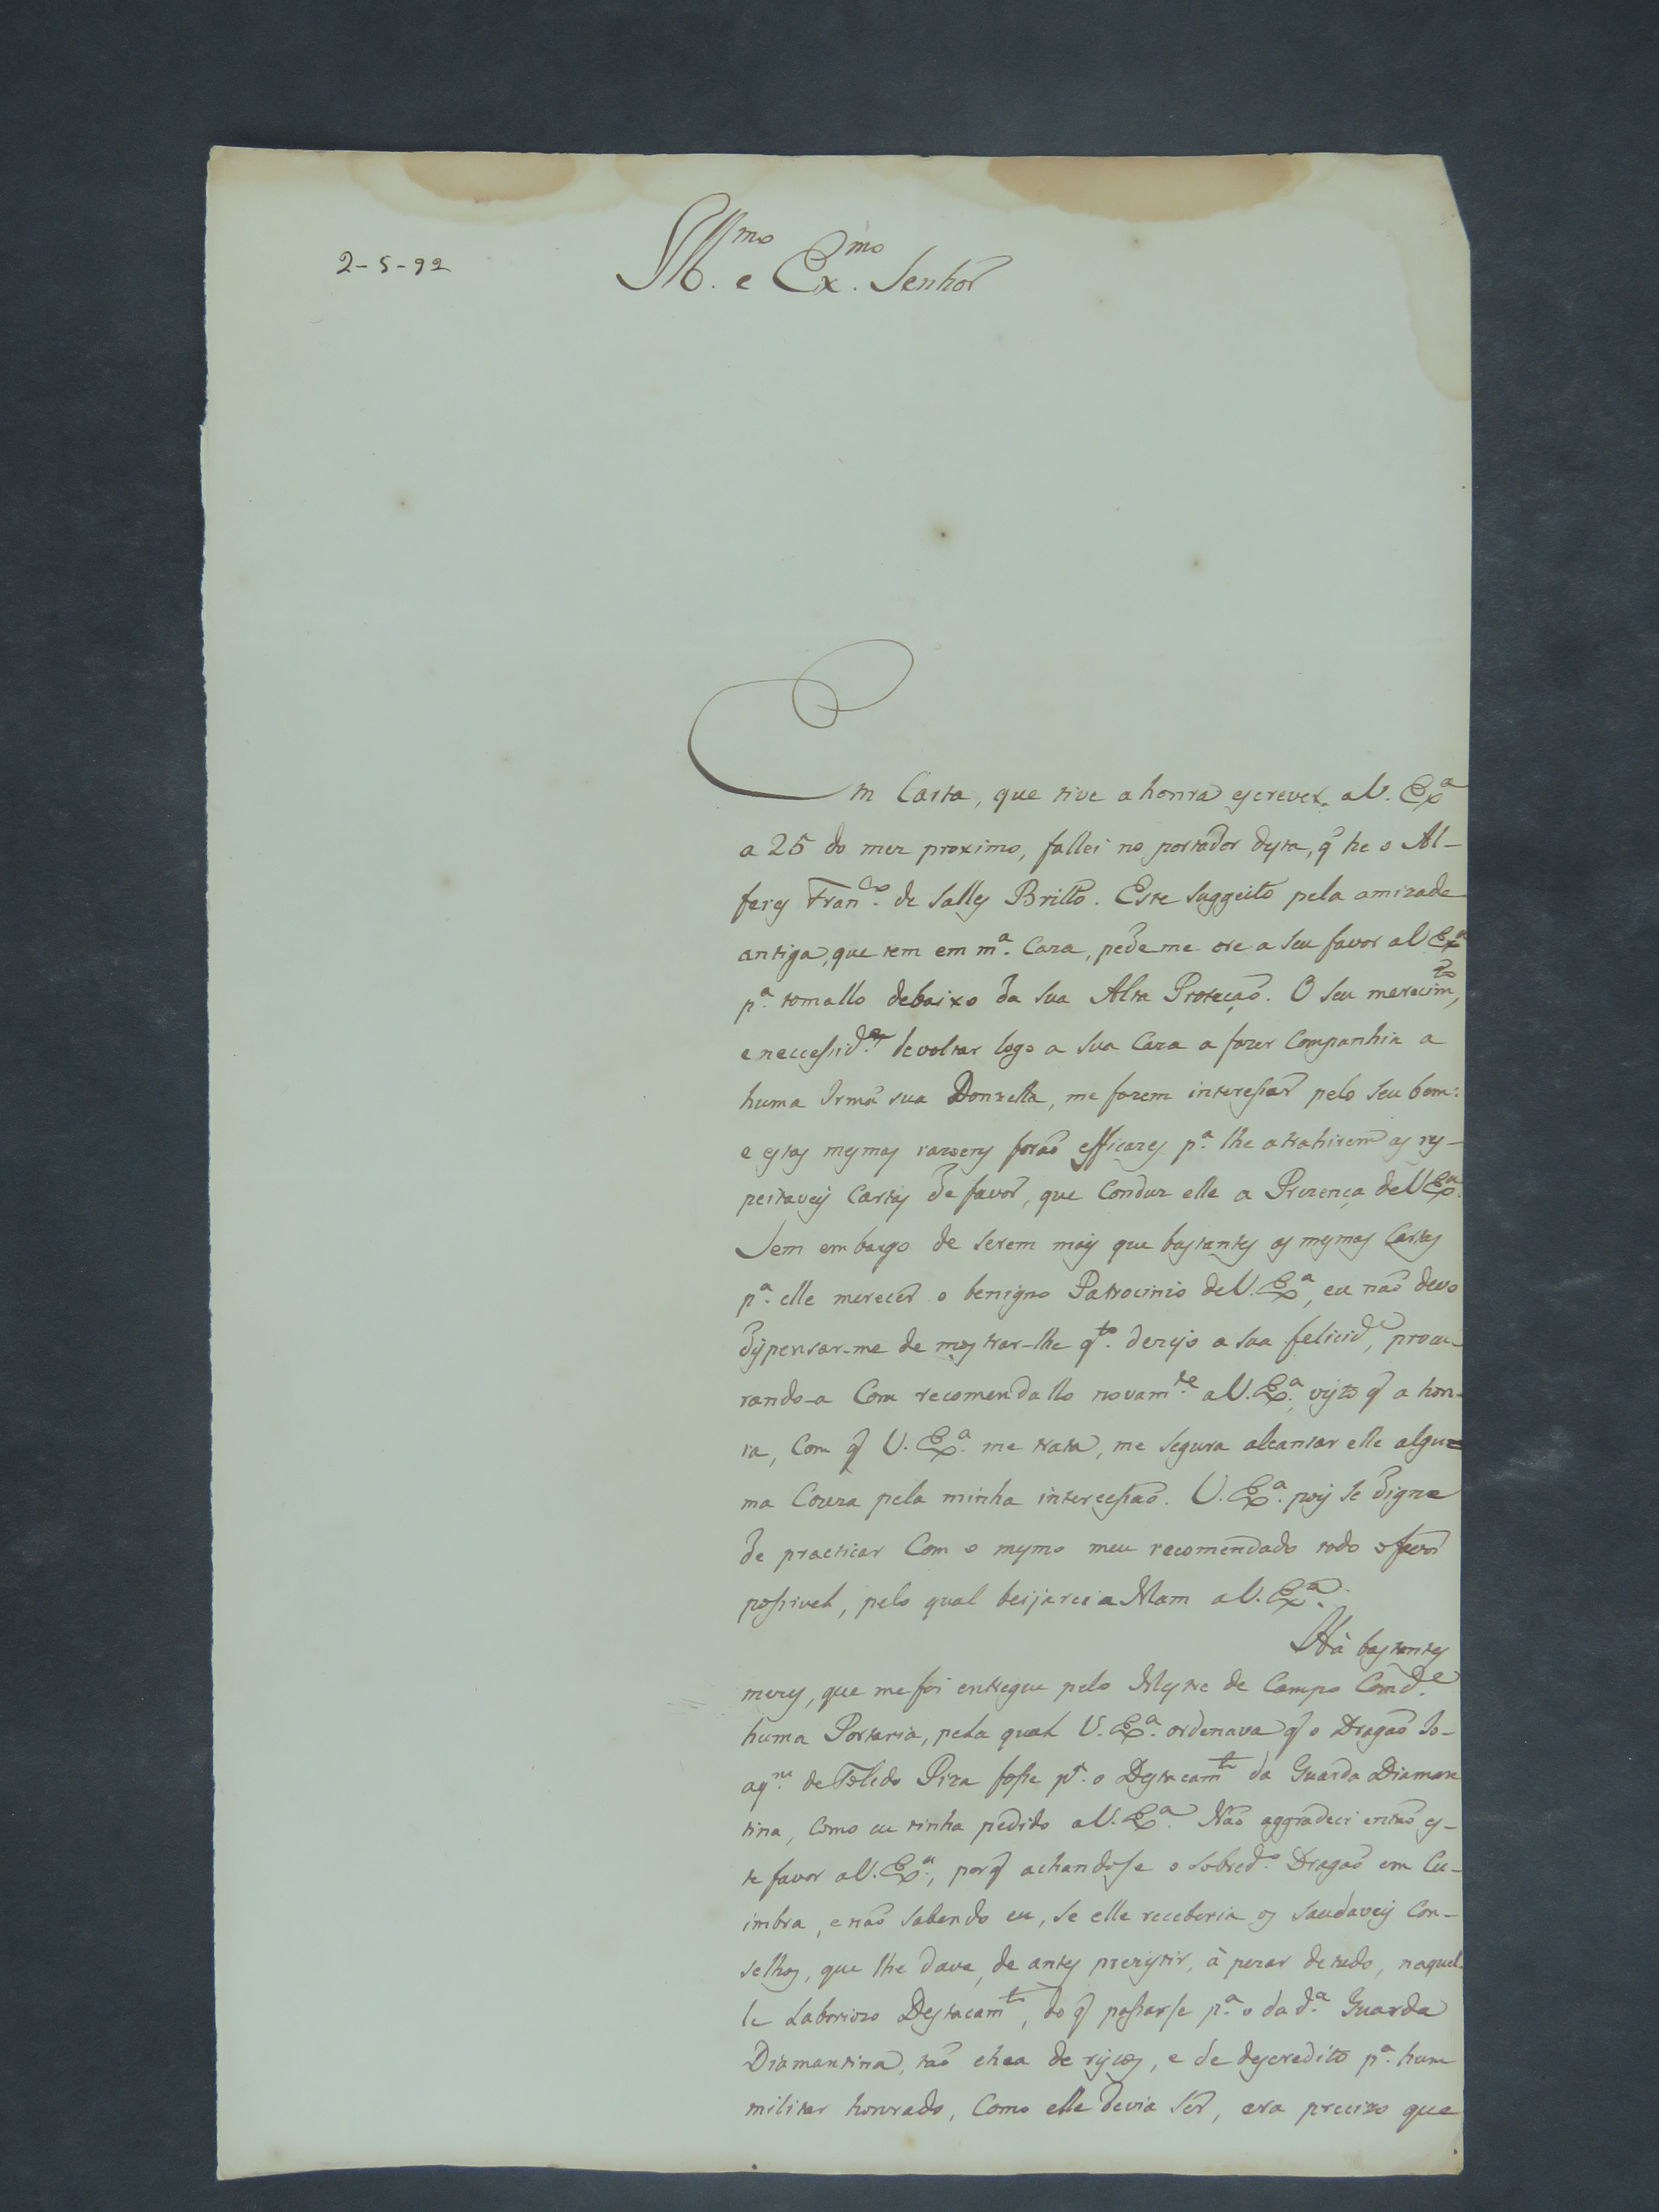 2-5-92
Ill.mo e Ex.mo Senhor
Em Carta, que tive a honra escrever a V. Ex.a
a 25 do mez proximo, fallei no portador desta, q̃ he o Al-
feres Fran.co de Salles Britto. Este suggeito pela amizade
antiga, que tem em m.a Caza, pede me ore a seu favor a V Ex.a
p.a tomallo debaixo da sua Alta Proteçaõ. O seu merecim.to,
e necessid.e de voltar logo a sua Caza a fazer Companhia a
huma Irmã sua Donzella, me fazem interessar pelo seu bem:
e estas mesmas razoens foraõ efficazes p.a lhe atrahirem as res-
peitaveis Cartas de favor, que Conduz elle a Prezença de V Ex.a
Sem embargo de serem mais que bastantes as mesmas Cartas
p.a elle merecer o benigno Patrocinio de V. Ex.a, eu naõ devo
dispensar-me de mostrar-lhe q.to dezejo a sua felicid.e, procu-
rando-a Com recomendallo novam.te a V. Ex.a, visto q̃ a hon-
ra, Com q̃ V. Ex.a me trata, me segura alcansar elle algu=
ma Couza pela minha intercessaõ. V. Ex.a pois se digne
de practicar Com o mesmo meu recomendado todo o favor
possivel, pelo qual beijarei a Mam a V. Ex.a
Há bastantes
mezes, que me foi entregue pelo Mestre de Campo Com.de
huma Portaria, pela qual V. Ex.a ordenava q̃ o Dragaõ Jo-
aq.m de Toledo Piza fosse p.a o Destacam.to da Guarda Diaman
tina, Como eu tinha pedido a V. Ex.a Naõ aggradeci entaõ es-
te favor a V. Ex.a, porq̃ achando se o sobred.o Dragaõ em Cu-
imbra, e naõ sabendo eu, se elle receberia os saudaveis Con-
selhos, que lhe dava, de antes prezistir, à pezar de tudo, naquel-
le Laboriozo Destacam.to, do q̃ passarse p.a o da d.a Guarda
Diamantina, taõ chea de riscos, e de descredito p.a hum
militar honrado, Como elle devia ser, era precizo que